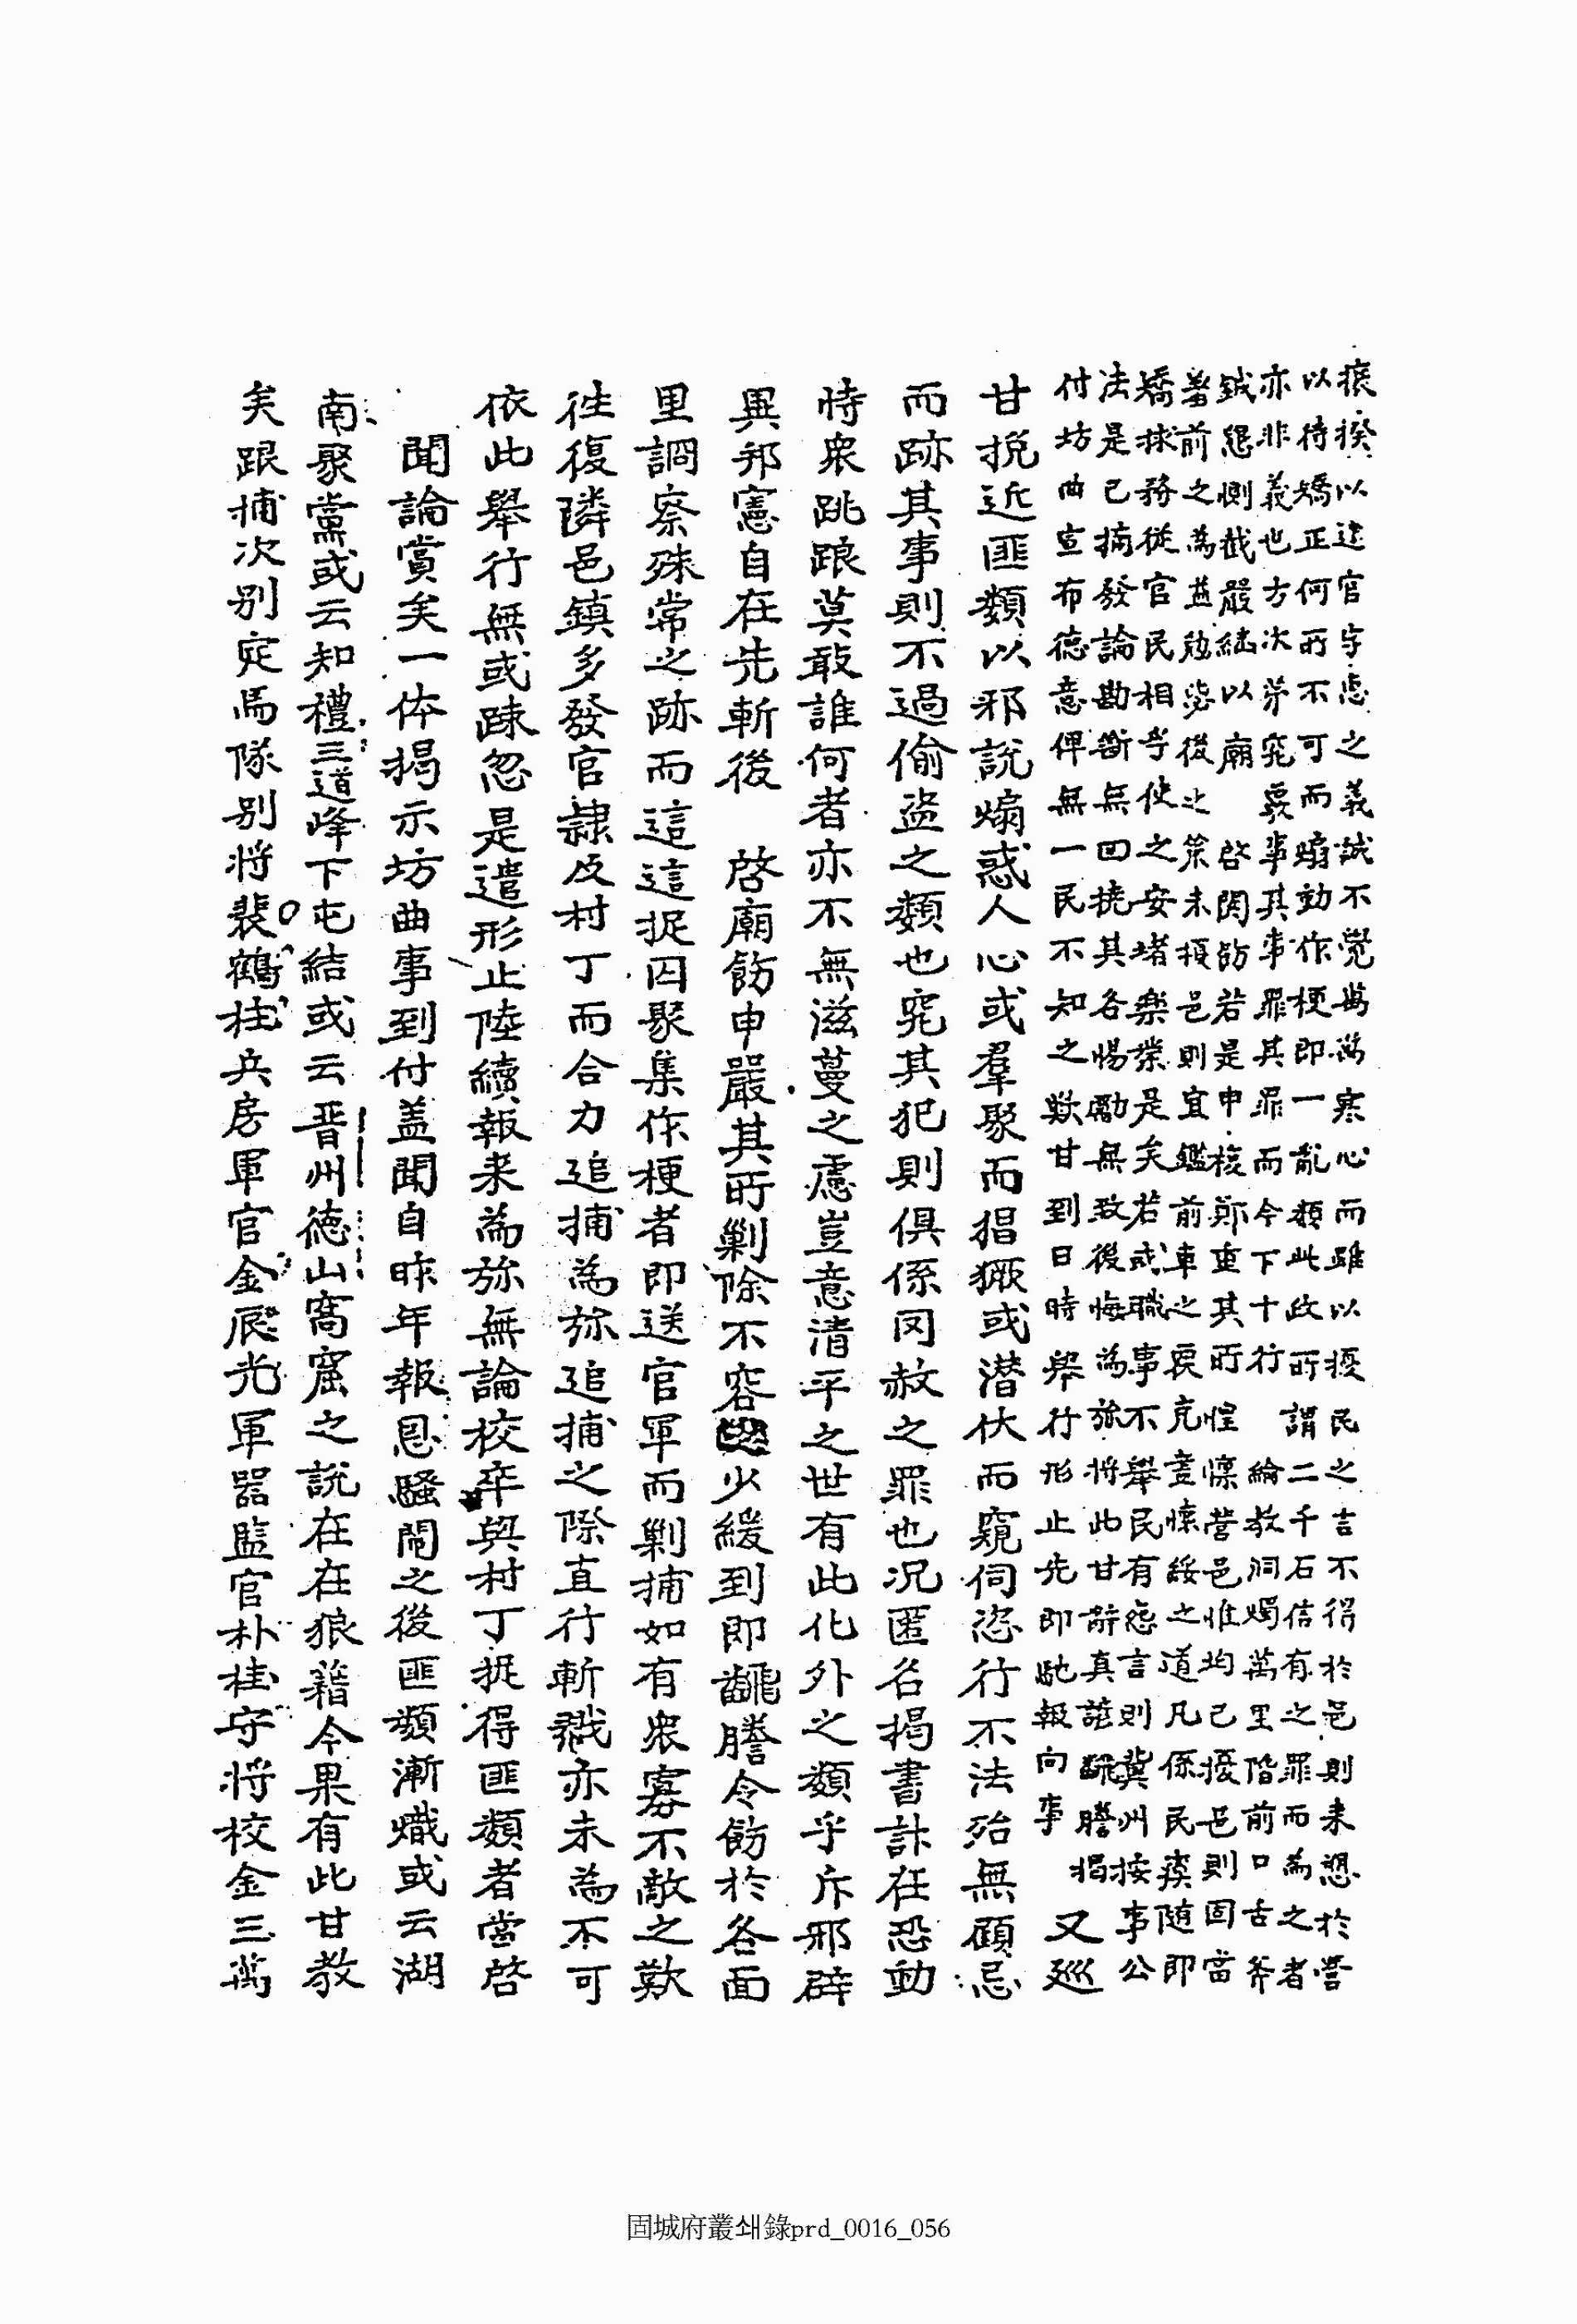 痕揆以違官守恚之義誠不覺萬萬寒心而雖以擾民之吉不得於邑則来愬於営
以待矯正何所不可而煽動作梗即一亂類此政所謂二千石信有之罪而為之者
亦非義也方次第究覈事其事罪其罪而今下十行 綸教洞燭萬里階前口古斧
鉞懇惻截嚴絃以廟 啓関飭若是申複鄭重其所惶懍営邑惟均己擾邑則固當
嘗前之為益勉毖後之策未頒邑則宜鑑前車之戾克壹懷綏之道凡係民瘼随即
矯捄務從官民相孚使之安堵楽業是矣若或職事不擧民有怨言則冀州按事公
法是已摘發論勘斷無回撓其各惕勵無致後悔為旀將此甘辞真諺飜謄揭
付坊曲宣布德意俾無一民不知之歎甘到日時擧行形止先即馳報向事 又巡
甘挽近匪類以邪說煽惑人心或羣聚而猖獗或潜伏而窺伺恣行不法殆無顧忌
而跡其事則不過偷盜之類也究其犯則俱係罔赦之罪也况匿名揭書計在恐動
恃衆跳踉莫敢誰何者亦不無滋蔓之慮豈意清平之世有此化外之類乎斥邪辟
異邦憲自在先斬後 啓廟飭申嚴其所剿除不容少緩到即飜謄令飭於各面
里詗察殊常之跡而這這捉囚聚集作梗者即送官軍而剿捕如有衆寡不敵之歎
徃復隣邑鎮多發官隷及村丁而合力追捕為旀追捕之際直行斬戮亦未為不可
依此擧行無或疎忽是遣形止陸續報来為旀無論校卒與村丁捉得匪類者當啓
聞論賞矣一体揭示坊曲事到付盖聞自昨年報恩騷鬧之後匪類漸熾或云湖
南聚黨或云知禮三道峰下屯結或云晋州德山窩窟之說在在狼藉今果有此甘教
矣跟捕次別定馬隊別將裴鶴柱兵房軍官金辰光軍器監官朴桂守將校金三萬
固城府叢쇄錄prd_0016_056